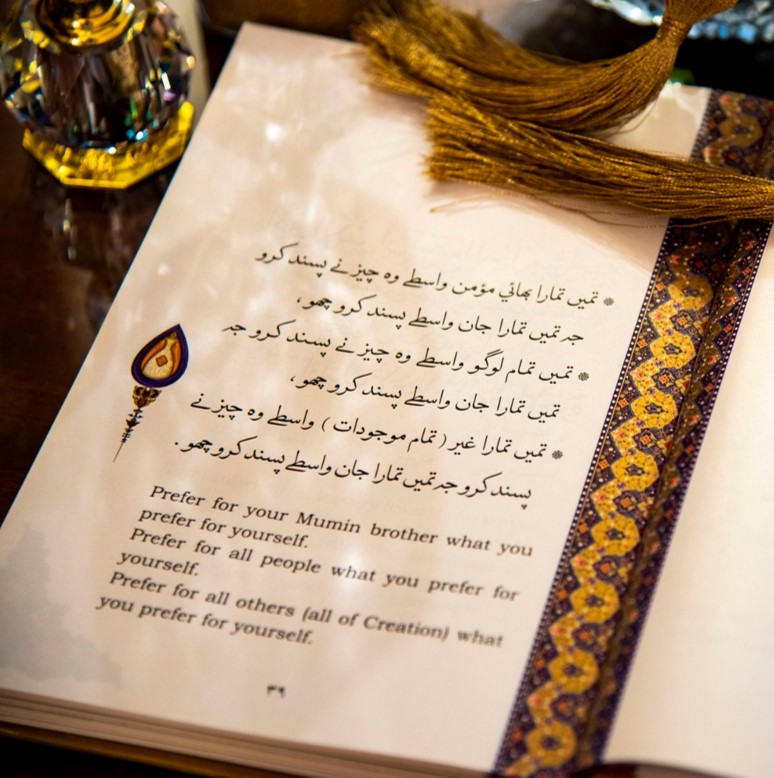 * تميں تمارا بھائي مؤمن واسطے وه چيز نے پسند كرو
جہ تميں تمارا جان واسطے پسند كرو چھو،
* تميں تمام لوگو واسطے وه چيز نے پسند كرو جہ
تميں تمارا جان واسطے پسند كرو چھو،
* تميں تمارا غير (تمام موجودات) واسطے وه چيز نے
پسند كرو جہ تميں تمارا جان واسطے پسند كرو چھو.
Prefer for your Mumin brother what you
prefer for yourself.
Prefer for all people what you prefer for
yourself.
Prefer for all others (all of Creation) what
you prefer for yourself.
٣٩